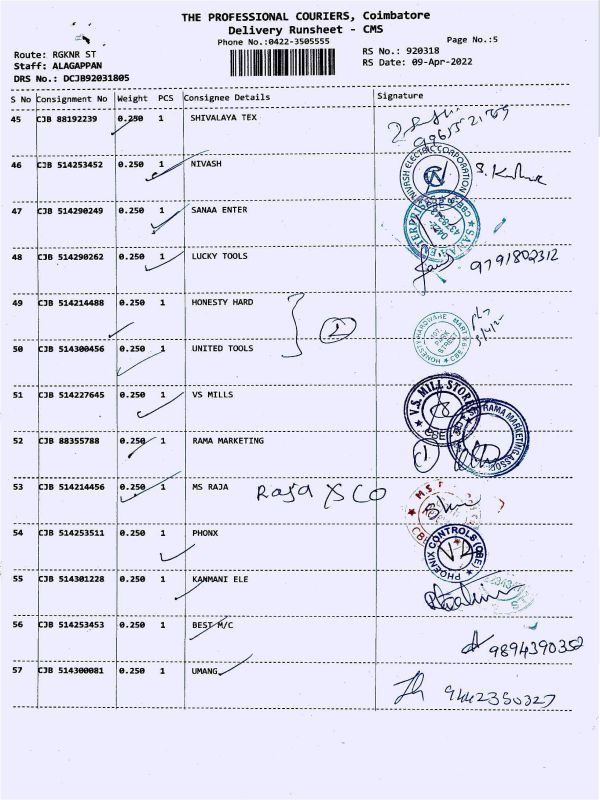 THE PROFESSIONAL COURIERS, Coimbatore
Delivery Runsheet - CMS
Phone No.:0422-3505555
Page No.:5
Route: RGKNR ST
RS No.: 920318
Staff: ALAGAPPAN
RS Date: 09-Apr-2022
DRS No.: DCJB92031805
S No Consignment No Weight PCS Consignee Details Signature
45 CJB 88192239 0.250 1 SHIVALAYA TEX
46 CJB 514253452 0.250 1 NIVASH
NIVASH ELECTRIC CORPORATION
47 CJB 514290249 0.250 1 SANAA ENTER
48 CJB 514290262 0.250 1 LUCKY TOOLS
9791802312
49 CJB 514214488 0.250 1 HONESTY HARD
HONESTY HARDWARE MART
50 CJB 514300456 0.250 1 UNITED TOOLS
51 CJB 514227645 0.250 1 VS MILLS
V.S. MILL STORES
CBE
52 CJB 88355788 0.250 1 RAMA MARKETING
RAMA MARKETING ASSO
53 CJB 514214456 0.250 1 MS RAJA
Raja & Co
54 CJB 514253511 0.250 1 PHONX
PHOENIX CONTROLS (CBE)
55 CJB 514301228 0.250 1 KANMANI ELE
56 CJB 514253453 0.250 1 BEST M/C
9894390352
57 CJB 514300081 0.250 1 UMANG
9442350327